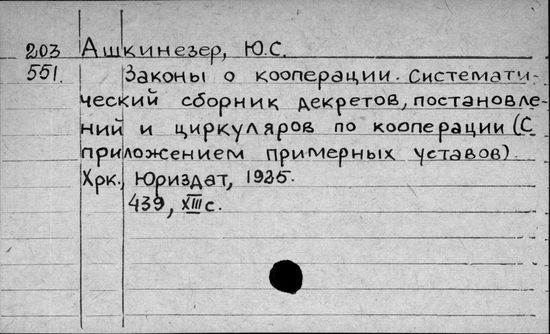 203 Ашкинезер, Ю.С.
551. Законы о кооперации. Системати-
ческий сборник декретов, постановле-
ний и циркуляров по кооперации (С
приложением примерных уставов).
Хрк., Юриздат, 1925.
439, XIII с.